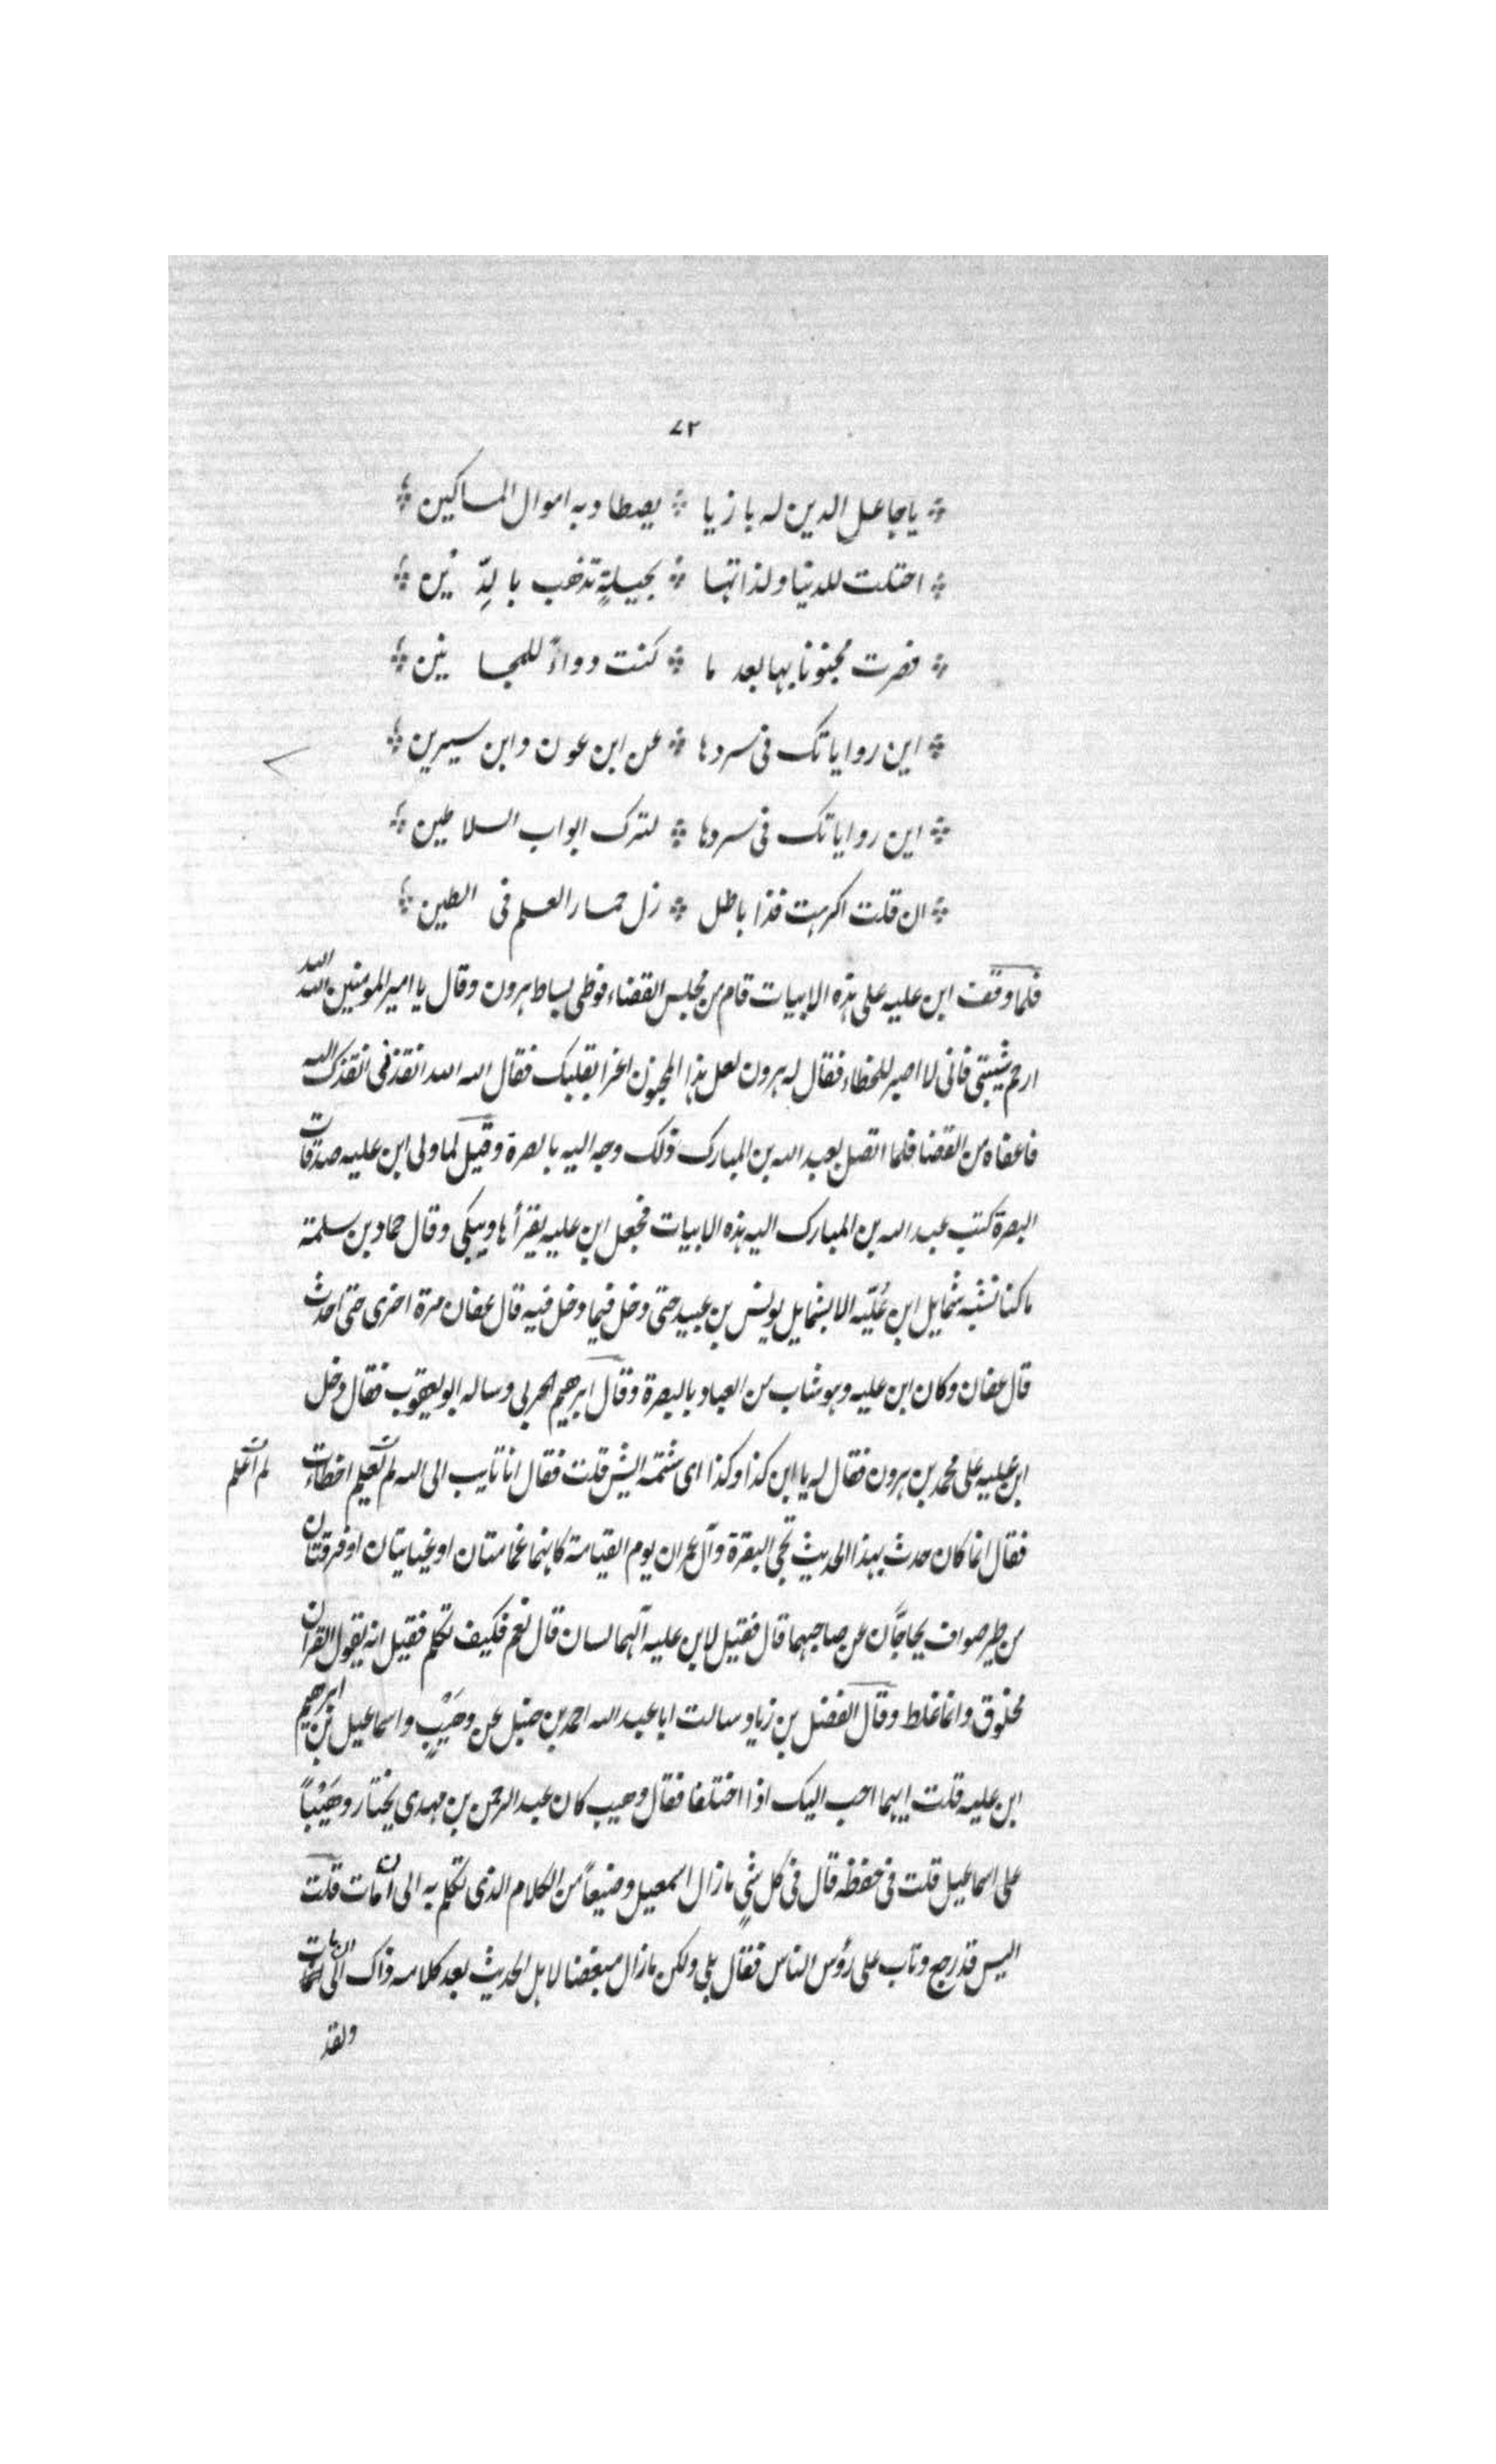 ٧٢
يا جاعل الدين له بازيا يصطاد به اموال المساكين
احتلت للدنيا ولذاتها بحيلةٍ تذهب بالدِّين
فصرت مجنونا بها بعد ما كنت دواءً للمجانين
اين رواياتك فى سردها عن ابن عون وابن سيرين
اين رواياتك فى سردها لترك ابواب السلاطين
ان قلت اكرهت فذا باطل زل حمار العلم فى الطين
فلما وقف ابن عليه على هذه الابيات قام من مجلس القضاء فوطى بساط هرون وقال يا امير المومنين الله الله
ارحم شيبتى فانى لا اصبر للخطاء فقال له هرون لعل هذا المجنون اغرا بقلبك فقال الله الله انقذنى انقذك الله
فاعفاه من القضا فلما اتصل بعبد الله بن المبارك ذلك وجه اليه بالصرة وقيل لما ولى ابن عليه صدقات
البصرة كتب عبد الله بن المبارك اليه هذه الابيات فجعل ابن عليه يقرأها ويبكى وقال حماد بن سلمة
ما كنا نشبه شمايل ابن عُليّه الا بشمايل يونس بن عبيد حتى دخل فيما دخل فيه قال عفان مرة اخرى حتى احدث
قال عفان وكان ابن عليه وهو شاب من العباد بالبصرة وقال ابرهيم الحربى وساله ابو يعقوب فقال دخل
ابن عليه على محمد بن هرون فقال له يا ابن كذا وكذا اى شتمه ايش قلت فقال انا تايب الى الله لم تعلم اخطات
لم اعلم
فقال انما كان حدث بهذا الحديث تجى البقرة وآل عمران يوم القيامة كانهما غمامتان او غيايتان او فرقتان
من طير صواف يحاجّان عن صاحبهما قال فقيل لابن عليه آلهما لسان قال نعم فكيف تكلم فقيل انه يقول القران
مخلوق وانما غلط وقال الفضل بن زياد سالت ابا عبد الله احمد بن حنبل عن وهَيْبٍ واسماعيل بن ابرهيم
ابن عليه قلت ايهما احب اليك اذا اختلفا فقال وهيب كان عبد الرحمن بن مهدى يختار وهَيْباً
على اسماعيل قلت فى حفظه قال فى كل شىٍ مازال اسمعيل وضيعاً من الكلام الذى تكلم به الى ان مات قلت
اليس قد رجع وتاب على رؤس الناس فقال بلى ولكن مازال مبغضا لاهل الحديث بعد كلامه ذاك الى ان مات
ولقد